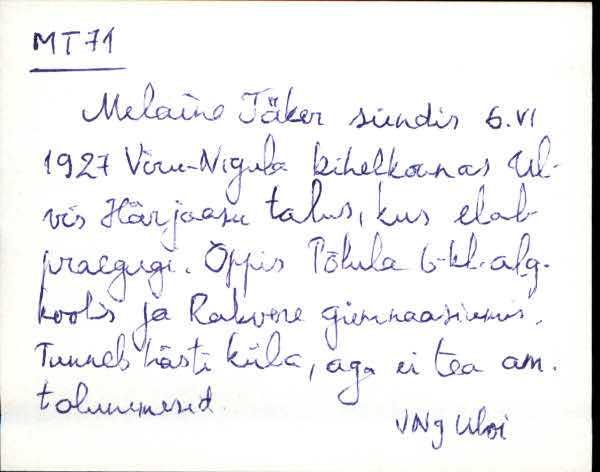 MT71
Melaine Jäker sündis 6.VI
1927 Viru-Nigula kihelkonnas Ul-
vis Härjaasu talus, kus elab
praegugi. Õppis Põlula 6-kl. alg-
koolis ja Rakvere gümnaasiumis.
Tunneb hästi küla, aga ei tea am.
talunimesid.
VNg Ulvi